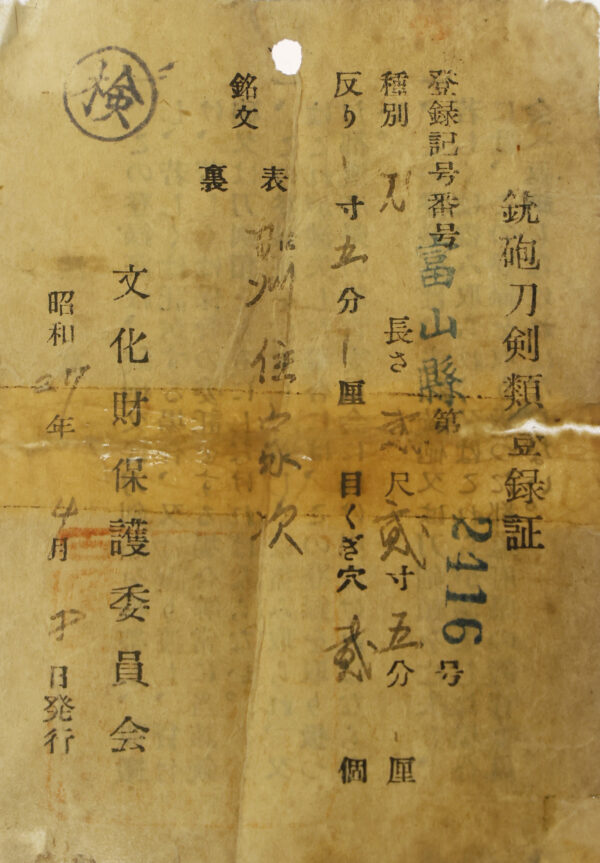 銃砲刀剣類登録証
登録記号番号 富山縣 第 2116 号
種別 刀 長さ 貳尺貳寸五分 厘
反り 寸五分 厘 目くぎ穴 貳 個
銘文
表 州住家次
裏
文化財保護委員会
昭和27年4月 日発行
検